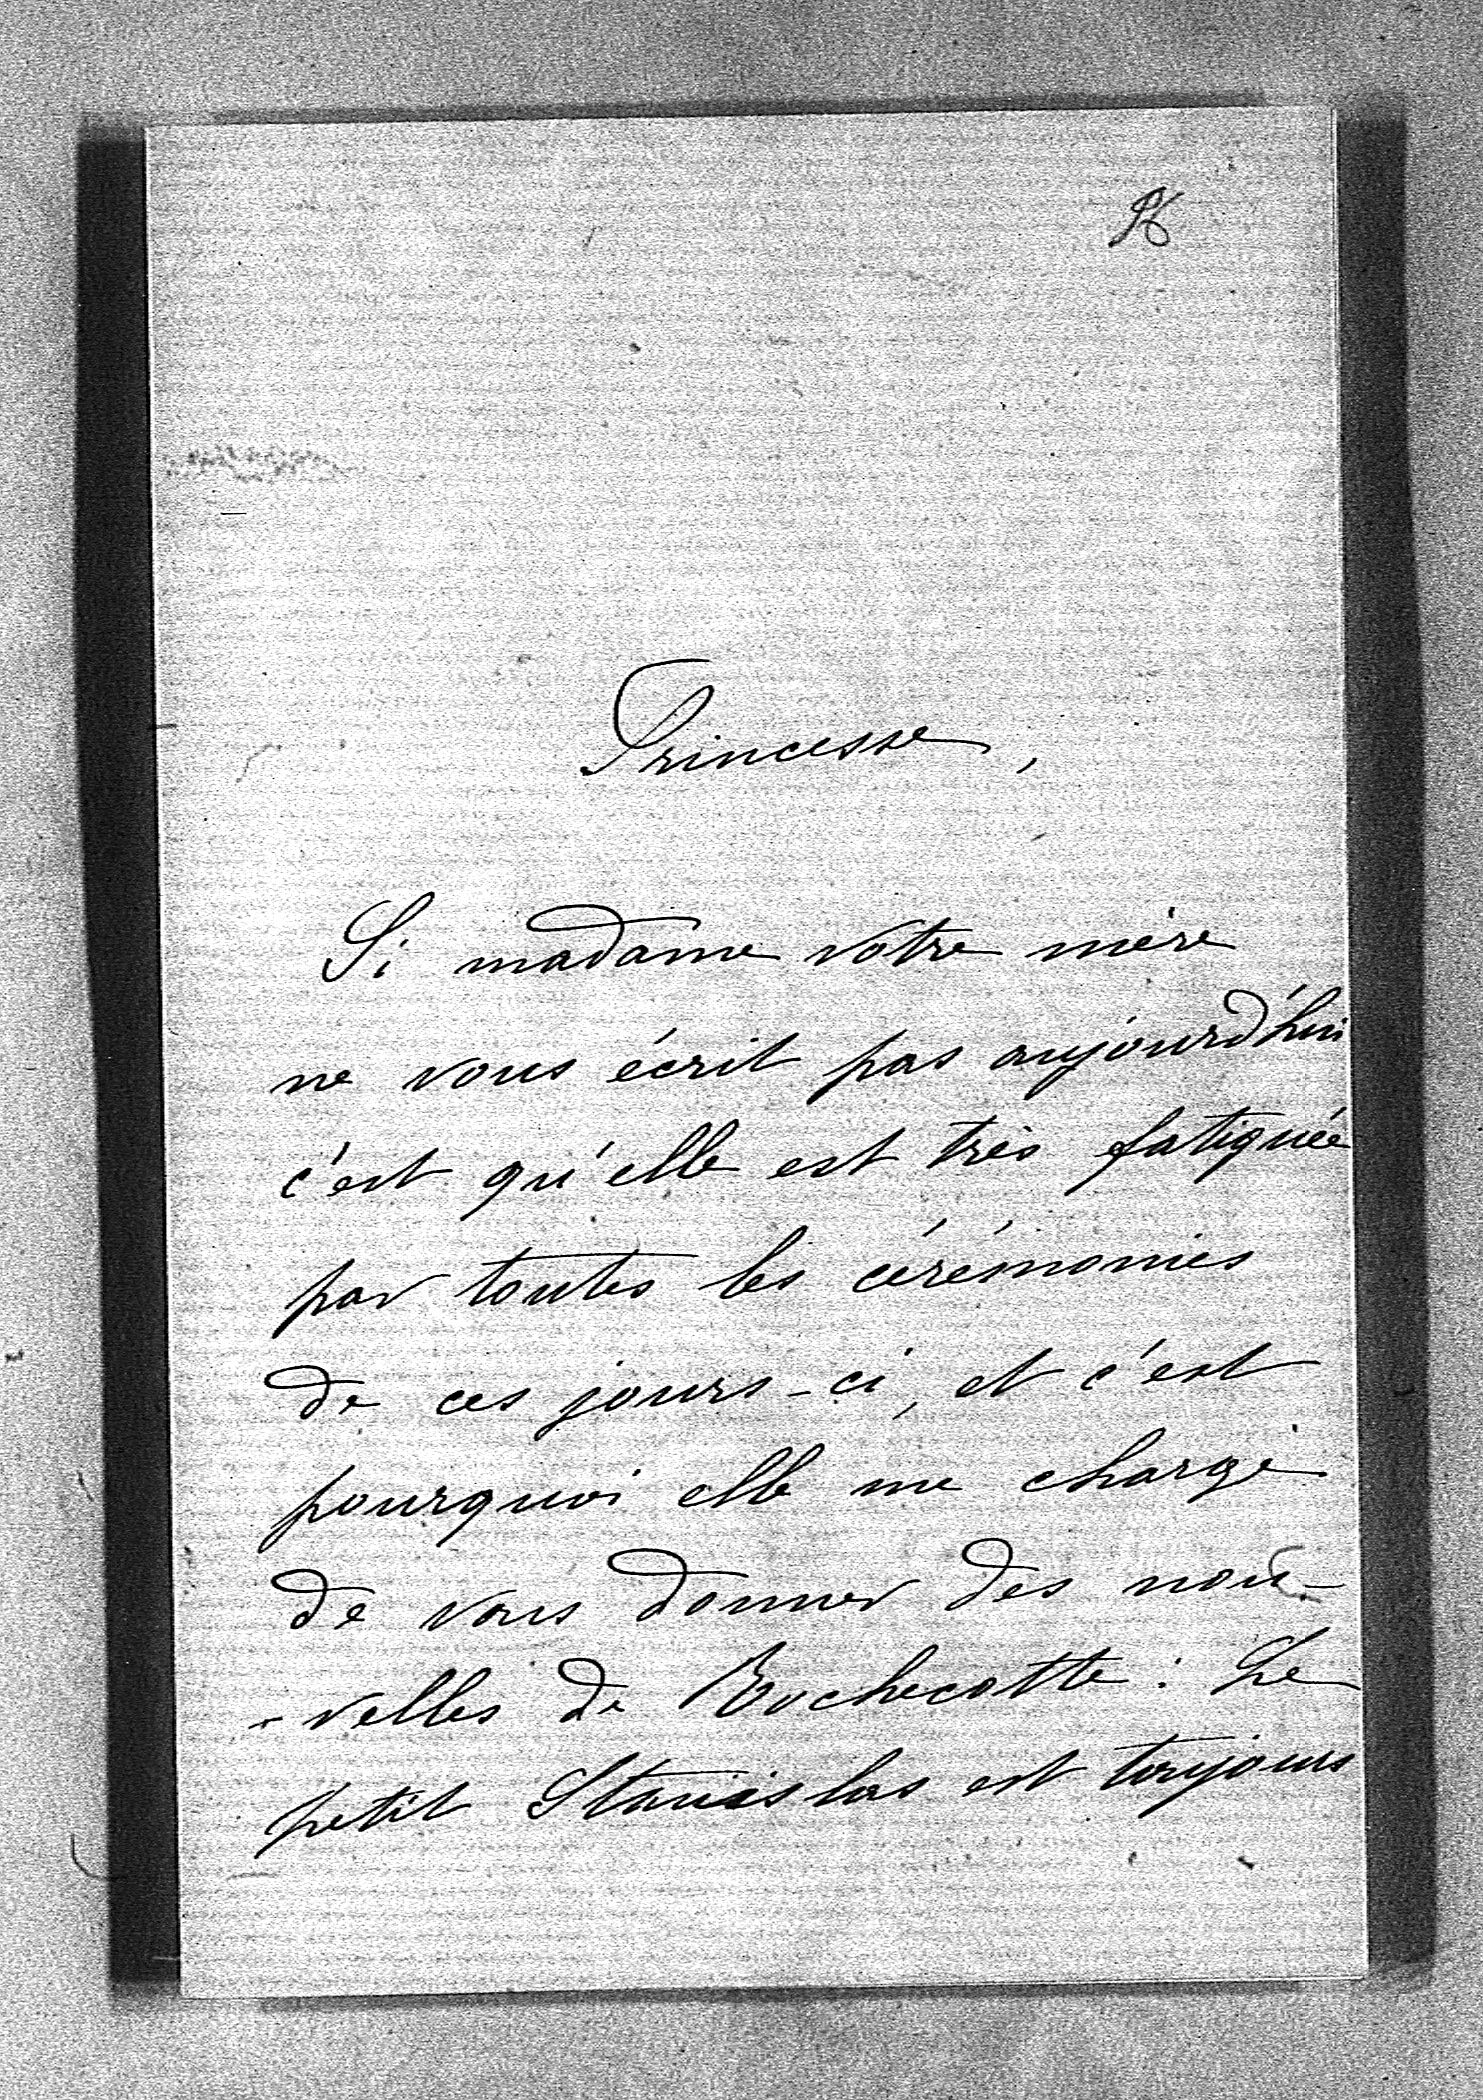 96
Princesse,
Si madame votre mère
ne vous écrit pas aujourd'hui
c'est qu'elle est très fatiguée
par toutes les cérémonies
de ces jours-ci, et c'est
pourquoi elle me charge
de vous donner des nou-
-velles de Rochecotte : Le
petit Stanislas est toujours